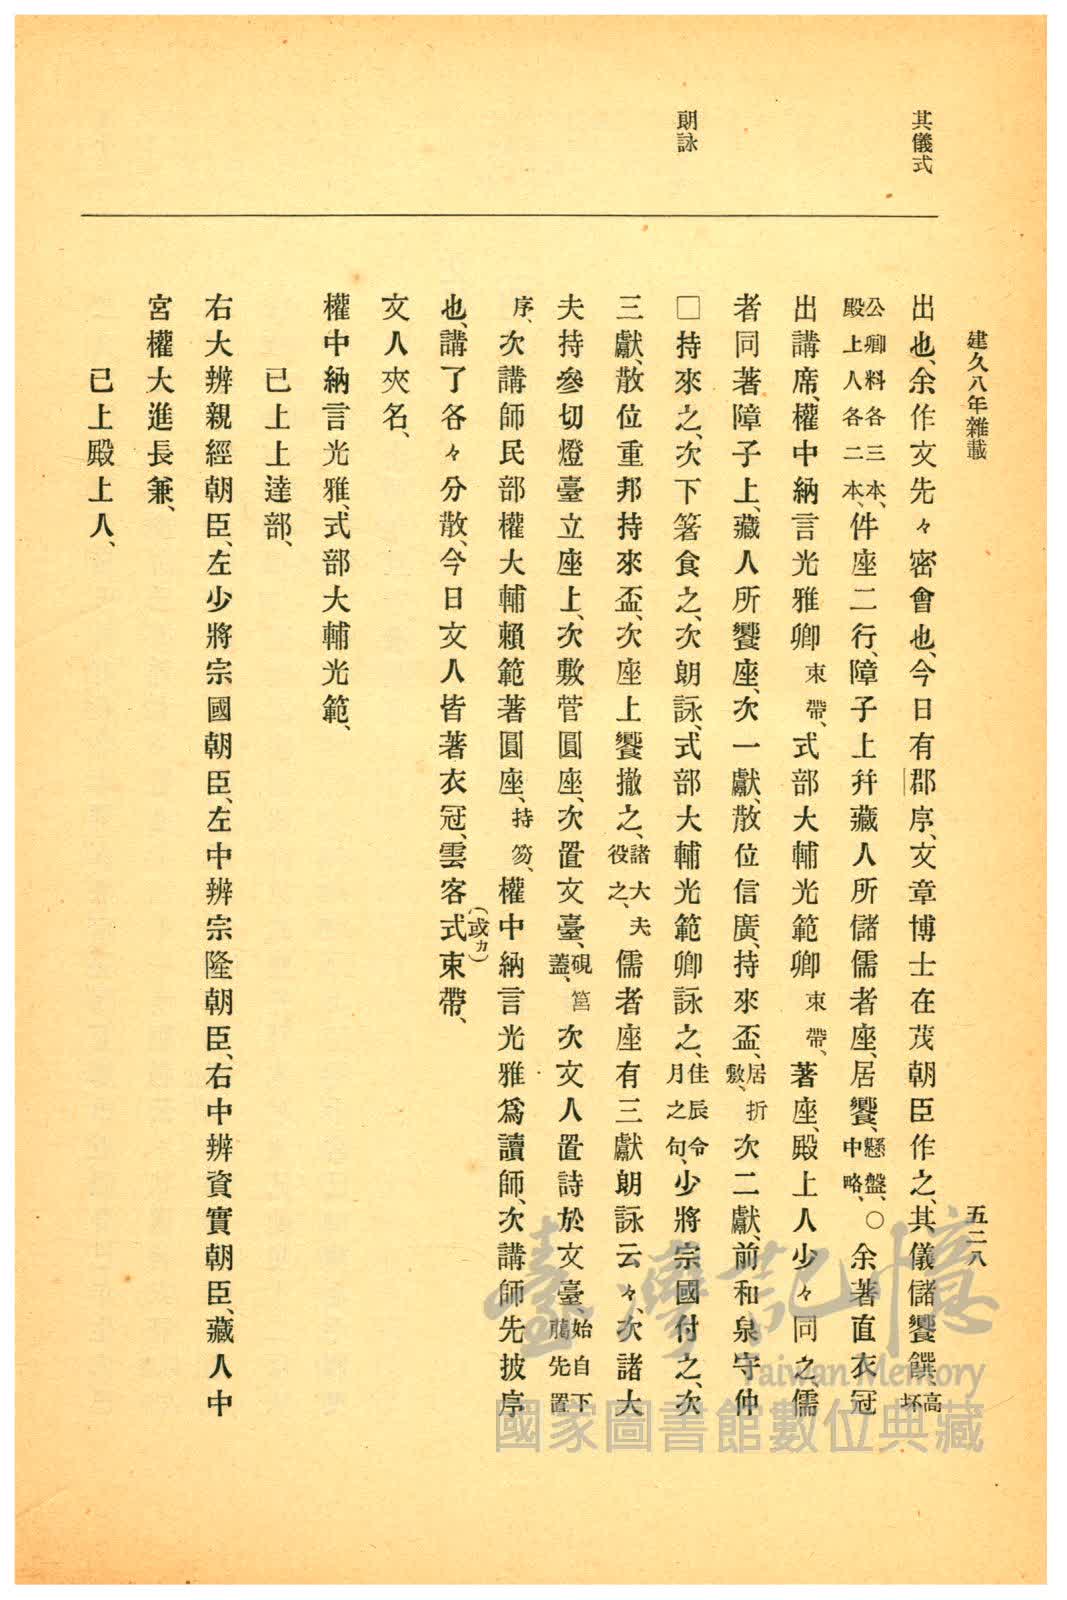 建久八年雜載
五二八
其儀式
朗詠
出也、余作文先々密會也、今日有郡序、文章博士在茂朝臣作之、其儀儲饗饌、高坏
公卿料各三本、殿上人各二本、件座二行、障子上幷藏人所儲儒者座、居饗、懸盤、中略、〇余著直衣冠
出講席、權中納言光雅卿束帶、式部大輔光範卿束帶、著座、殿上人少々同之、儒
者同著障子上、藏人所饗座、次一獻、散位信廣、持來盃、居折敷、次二獻、前和泉守仲
□持來之、次下箸食之、次朗詠、式部大輔光範卿詠之、佳辰令月之句、少將宗國付之、次
三獻、散位重邦持來盃、次座上饗撤之、諸大夫役之、儒者座有三獻朗詠云々、次諸大
夫持參切燈臺立座上、次敷菅圓座、次置文臺、硯筥蓋、次文人置詩於文臺始自下﨟先置
序、次講師民部權大輔賴範著圓座、持笏、權中納言光雅爲讀師、次講師先披序
也、講了各々分散、今日文人皆著衣冠、雲客式(或カ)束帶、
文人夾名、
權中納言光雅、式部大輔光範、
已上上達部、
右大辨親經朝臣、左少將宗國朝臣、左中辨宗隆朝臣、右中辨資實朝臣、藏人中
宮權大進長兼、
已上殿上人、
臺灣記憶
Taiwan Memory
國家圖書館數位典藏